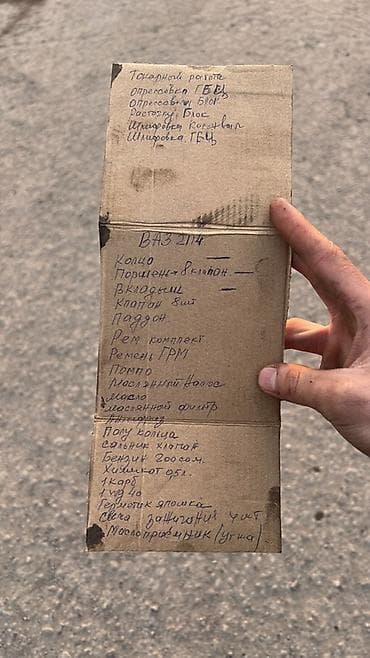 Токарный работа
опрессовка ГБЦ
опрессовка Блок
Расточку Блок
Шлифовка Коленвал
Шлифовка ГБЦ
ВАЗ 2114
Колцо —
Поршень 8 клапан —
Вкладыш —
Клапан 8 шт
Паддон
Рем комплект
Ремень ГРМ
Помпо
Маслянный насос
масло
маслянной филтр
Антифриз
Полу колца
сальник клапан
Бензин 200 сом.
Химикот 0,5 л.
1 карб
1 
Герметик япошка
Свеча зажигания 4 шт
Маслоприёмник